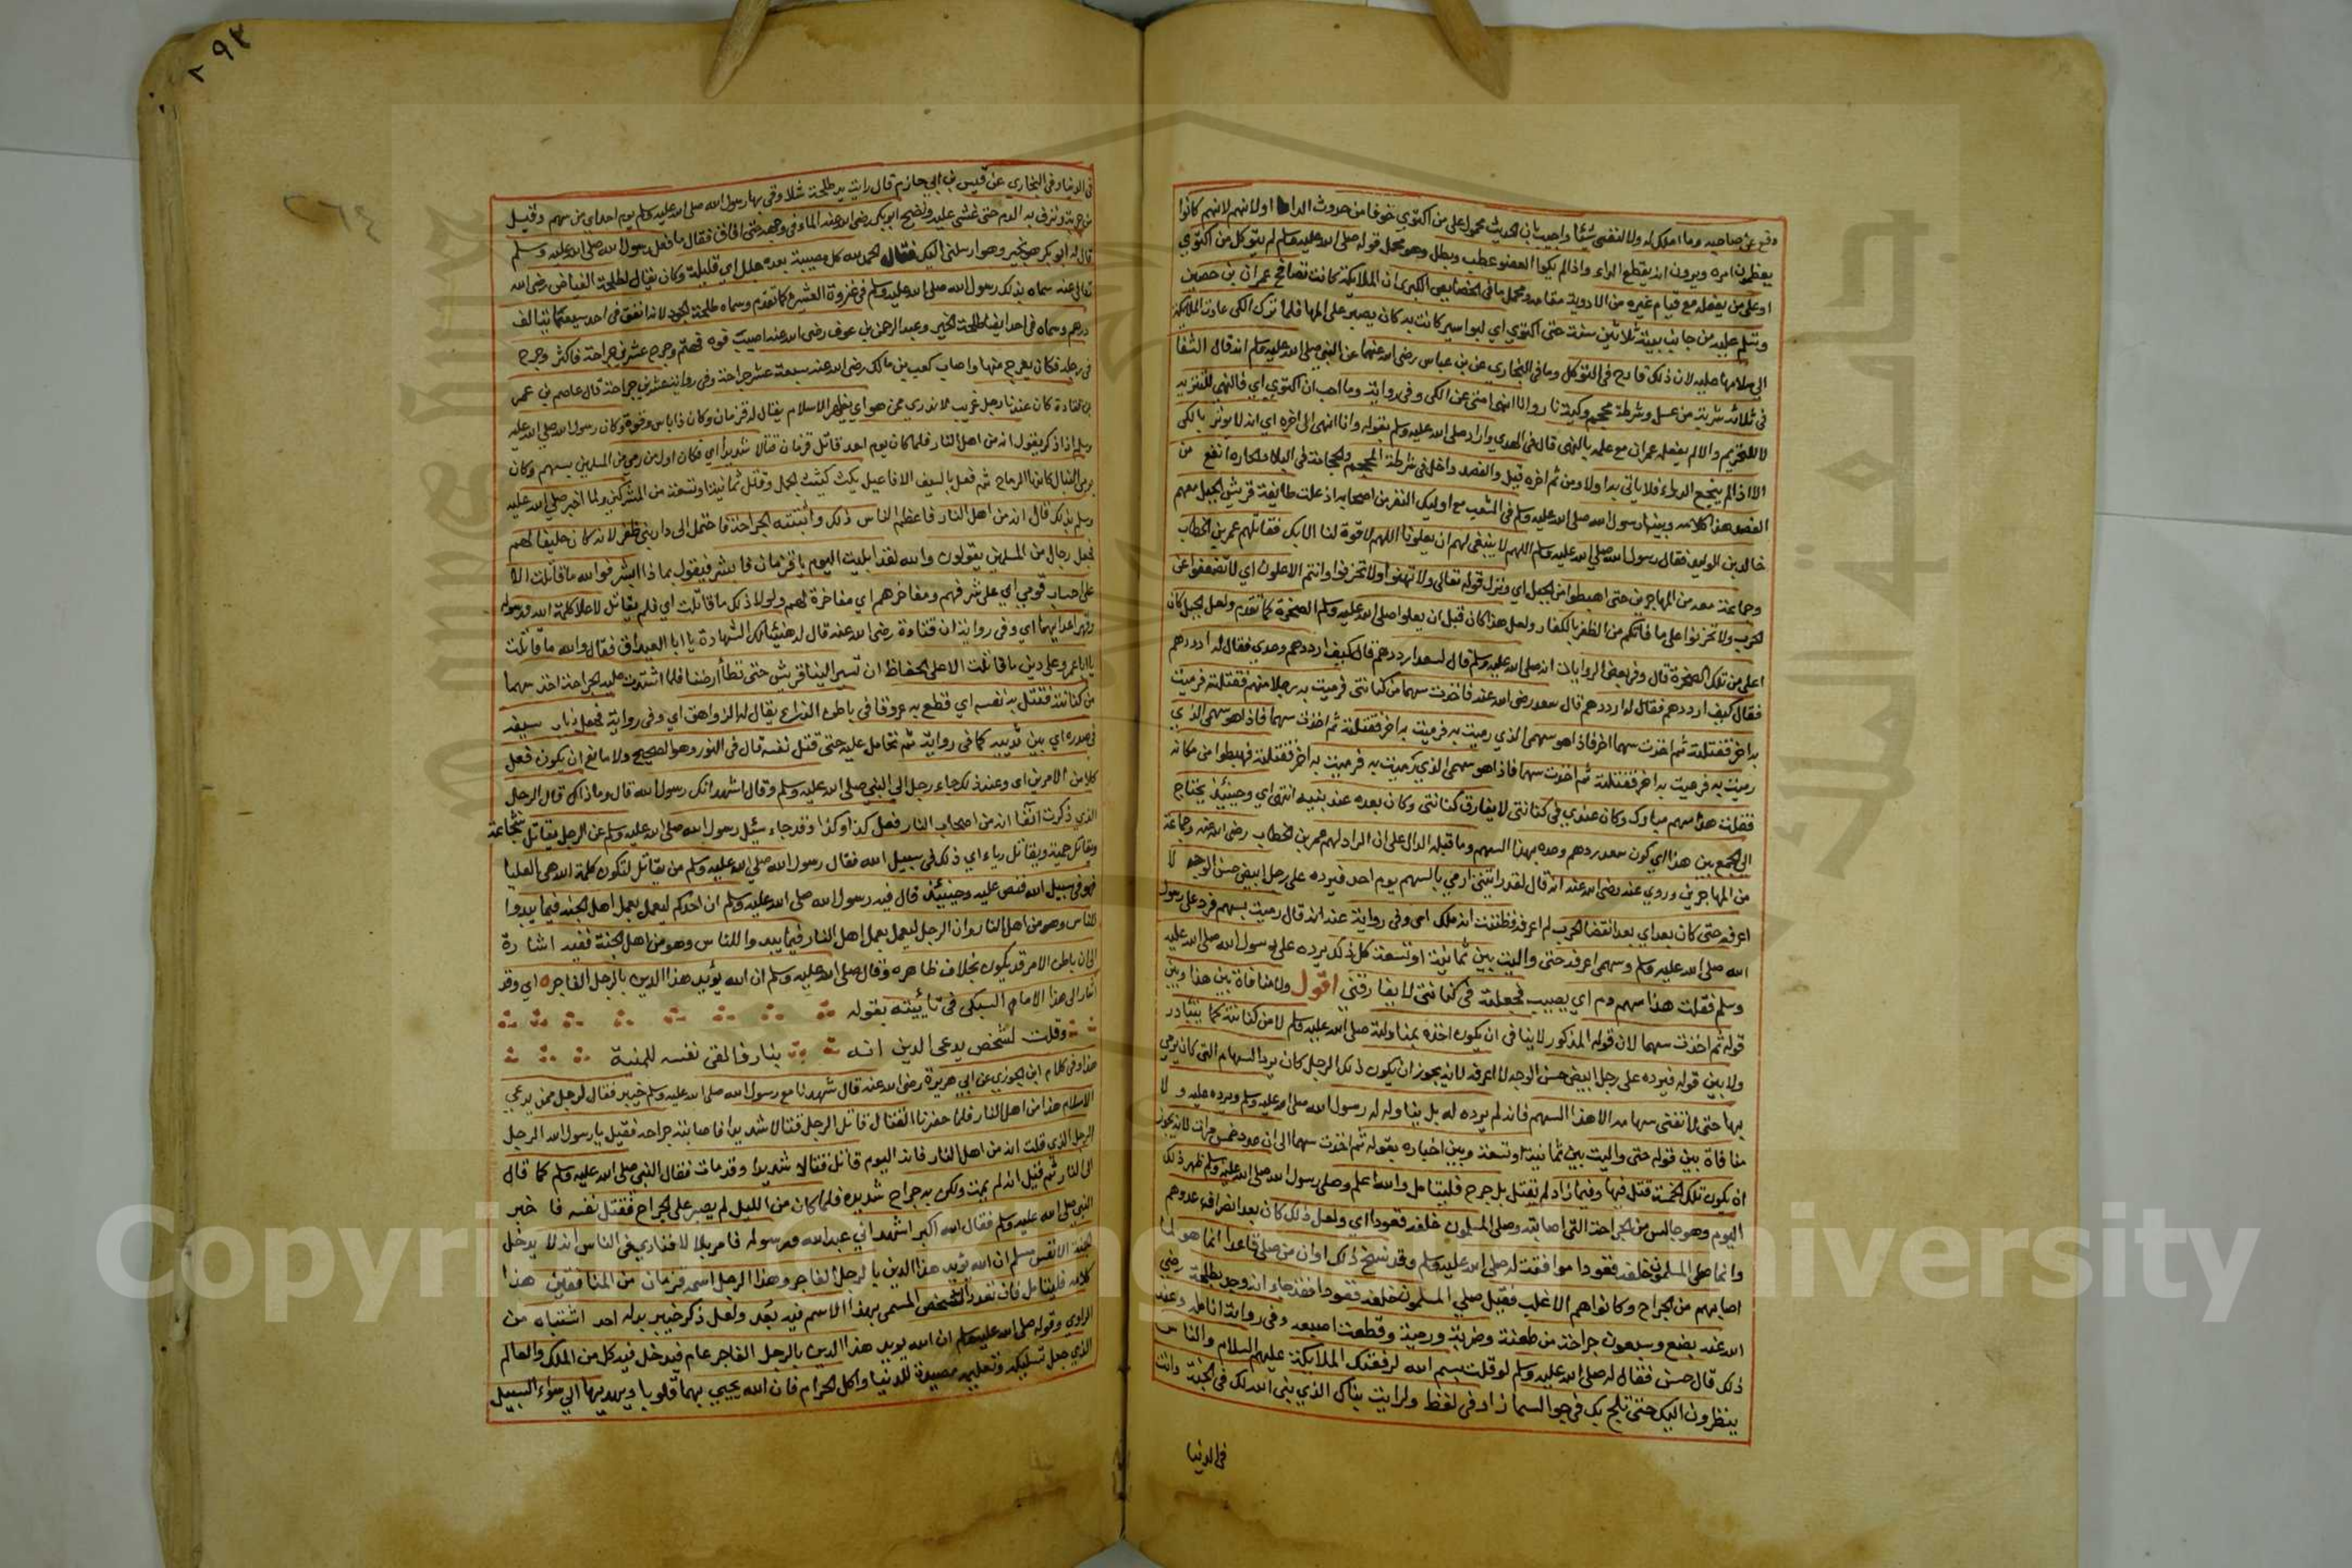 وقع على صاحبه وما املك له ولا لنفسي شيئا واجيب بان الحديث محمول على من اكتوى خوفا من حدوث الداء او لانهم كانوا
يعظمون امره ويرون انه يقطع الداء واذا لم يكوا العضو عطب وبطل وهو محمل قوله صلى الله عليه وسلم لم يتوكل من اكتوى
او على من يفعله مع قيام غيره من الادوية مقامه ومحمل ما في الخصايص الكبرى ان الملايكة كانت تصافح عمران بن حصين
وتسلم عليه من جانب بيته ثلاثين سنة حتى اكتوى اي لبواسير كانت به كان يصبر على المها فلما ترك الكى عادت الملايكة
الى سلامها عليه لان ذلك قادح في التوكل وما في البخاري عن بن عباس رضي الله عنهما عن النبي صلى الله عليه وسلم انه قال الشفا
في ثلاثة شربة من عسل وشرطة محجم وكية نار وانا انهى امتى عن الكى وفي رواية وما احب ان اكتوى اي فالنهى للتنزيه
لا للتحريم والا لم يفعله عمران مع علمه بالنهى قال في الهدى واراد صلى الله عليه وسلم بقوله وانا انهى الى اخره اي انه لا يوتر بالكى
الا اذا لم ينجع الدواء فلا ياتي به اولا ومن ثم اخره قيل والفصد داخل في شرطة المحجم والحجامة في البلاد الحاره انفع من
الفصد هذا كلامه وبينا رسول الله صلى الله عليه وسلم في الشعب مع اوليك النفر من اصحابه اذ علت طايفة قريش الجبل معهم
خالد بن الوليد فقال رسول الله صلى الله عليه وسلم اللهم لا ينبغي لهم ان يعلونا اللهم لا قوة لنا الا بك فقاتلهم عمر بن الخطاب
وجماعة معه من المهاجرين حتى اهبطوا من الجبل اي ونزل قوله تعالى ولا تهنوا ولا تحزنوا وانتم الاعلون اي لا تضعفوا عن
الحرب ولا تحزنوا على ما فاتكم من الظفر بالكفار ولعل هذا كان قبل ان يعلوا صلى الله عليه وسلم الصخرة كما تقدم ولعل الجبل كان
اعلى من تلك الصخرة قال وفي بعض الروايات انه صلى الله عليه وسلم قال لسعد ارددهم قال كيف ارددهم وحدي فقال له ارددهم
فقال كيف ارددهم فقال له ارددهم قال سعد رضي الله عنه فاخذت سهما من كنانتى فرميت به رجلا منهم فقتلته فرميت
به اخر فقتلته ثم اخذت سهما اخر فاذا هو سهمى الذي رميت به فرميت به اخر فقتلته ثم اخذت سهما فاذا هو سهمى الذي
رميت به فرميت به اخر فقتلته ثم اخذت سهما فاذا هو سهمى الذي رميت به فرميت به اخر فقتلته فهبطوا من مكانه
فقلت هذا سهم مبارك وكان عندي في كنانتى لا يفارق كنانتى وكان بعده عند بنيه انتهى اي وحينئذ يحتاج
الى الجمع بين هذا اي كون سعد ردهم وحده بهذا السهم وما قبله الدال على ان الراد لهم عمر بن الخطاب رضي الله عنه وجماعة
من المهاجرين وروي عنه رضي الله عنه انه قال لقد رايتني ارمي بالسهم يوم احد فيرده على رجل ابيض حسن الوجه لا
اعرفه حتى كان بعد اي بعد انقضا الحرب لم اعرفه فظننت انه ملك اى وفي رواية عنه انه قال رميت بسهم فرد على رسول
الله صلى الله عليه وسلم وسهمى اعرفه حتى واليت بين ثمانية او تسعة كل ذلك يرده على رسول الله صلى الله عليه
وسلم فقلت هذا سهم دم اي يصيب فجعلته في كنانتى لا يفارقني اقول ولا منافاة بين هذا وبين
قوله ثم اخذت سهما لان قوله المذكور لا ينافي ان يكون اخذه بمناولته صلى الله عليه وسلم لا من كنانته كما يتبادر
ولا بين قوله فيرده على رجل ابيض حسن الوجه لا اعرفه لانه يجوز ان يكون ذلك الرجل كان يرد السهام التى كان يرمي
بها حتى لا تفنى سهامه الا هذا السهم فانه لم يرده له بل يناوله له رسول الله صلى الله عليه وسلم ويرده عليه ولا
منافاة بين قوله حتى واليت بين ثمانية او تسعة وبين اخباره بقوله ثم اخذت سهما الى ان عدد خمس مرات لانه يجوز
ان يكون تلك الخمسة قتل فيها وفيما زاد لم يقتل بل جرح فليتامل والله اعلم وصلى رسول الله صلى الله عليه وسلم ظهر ذلك
اليوم وهو جالس من الجراحة التى اصابته وصلى المسلمون خلفه قعودا اي ولعل ذلك كان بعد انصراف عدوهم
وانما صلى المسلمون خلفه قعودا موافقة له صلى الله عليه وسلم وقد نسخ ذلك او ان من صلى قاعدا انما هو لما
اصابهم من الجراح وكانوا هم الاغلب فقيل صلى المسلمون خلفه قعودا فقد جاء انه وجد بطلحة رضي
الله عنه بضع وسبعون جراحة من طعنة وضربة ورمية وقطعت اصبعه وفي رواية انامله وعند
ذلك قال حسن فقال له صلى الله عليه وسلم لو قلت بسم الله لرفعتك الملايكة عليهم السلام والناس
ينظرون اليك حتى تلج بك في جو السما زاد في لفظ ولرايت بناك الذي بنى الله لك في الجنة وانت
في الدنيا
في الدنيا وفي البخاري عن قيس بن ابي حازم قال رايت يد طلحة شلا وقى بها رسول الله صلى الله عليه وسلم يوم احد اى من سهم وقيل
من حربة ونزف به الدم حتى غشي عليه ونضح ابو بكر رضي الله عنه الماء في وجهه حتى افاق فقال ما فعل رسول الله صلى الله عليه وسلم
قال له ابو بكر هو بخير وهو ارسلنى اليك فقال الحمد لله كل مصيبة بعده جلل اي قليلة وكان يقال لطلحة الفياض رضي الله
تعالى عنه سماه بذلك رسول الله صلى الله عليه وسلم في غزوة العشيرة كما تقدم وسماه طلحة الجود لانه انفق في احد سبعمائة الف
درهم وسماه في احد ايضا طلحة الخير وعبد الرحمن بن عوف رضي الله عنه اصيب فوه فهتم وجرح عشرين جراحة فاكثر وجرح
في رجله فكان يعرج منها واصاب كعب بن مالك رضي الله عنه سبعة عشر جراحة وفي رواية عشرين جراحة قال عاصم بن عمر
بن قتادة كان عندنا رجل غريب لا ندري ممن هو اي يظهر الاسلام يقال له قزمان وكان ذا باس وقوة وكان رسول الله صلى الله عليه
وسلم اذا ذكر يقول انه من اهل النار فلما كان يوم احد قاتل قزمان قتالا شديدا اي فكان اول من رمى من المسلمين بسهم وكان
يرمى النبال كانها الرماح ثم فعل بالسيف الافاعيل يكت كتيت الجمل وقتل ثمانية او تسعة من المشركين ولما اخبر صلى الله عليه
وسلم بذلك قال انه من اهل النار فاعظم الناس ذلك واثبتته الجراحة فاحتمل الى دار بني ظفر لانه كان حليفا لهم
فجعل رجال من المسلمين يقولون والله لقد ابليت اليوم يا قزمان فابشر فيقول بماذا ابشر فوالله ما قاتلت الا
على احساب قومي اي على شرفهم ومفاخرهم اي مفاخرة لهم ولولا ذلك ما قاتلت اي فلم يقاتل لاعلا كلمة الله ورسوله
وقهر اعدايهما اي وفي رواية ان قتادة رضي الله عنه قال له هنيئا لك الشهادة يا ابا الغيداق فقال والله ما قاتلت
يا ابا عمرو على دين ما قاتلت الا على الحفاظ ان تسير الينا قريش حتى تطأ ارضنا فلما اشتدت عليه الجراحة اخذ سهما
من كنانته فقتل به نفسه اي قطع به عروقا في باطن الذراع يقال لها الزواهق اي وفي رواية فجعل ذباب سيفه
في صدره اي بين ثدييه كما في رواية ثم تحامل عليه حتى قتل نفسه قال في النور وهو الصحيح ولا مانع ان يكون فعل
كلا من الامرين اى وعند ذلك جاء رجل الى النبي صلى الله عليه وسلم وقال اشهد انك رسول الله قال وما ذاك قال الرجل
الذي ذكرت آنفا انه من اصحاب النار فعل كذا وكذا وقد جاء سئل رسول الله صلى الله عليه وسلم عن الرجل يقاتل شجاعة
ويقاتل حمية ويقاتل رياء اي ذلك في سبيل الله فقال رسول الله صلى الله عليه وسلم من يقاتل لتكون كلمة الله هي العليا
فهو في سبيل الله فنص عليه وحينئذ قال فيه رسول الله صلى الله عليه وسلم ان احدكم ليعمل بعمل اهل الجنة فيما يبدوا
للناس وهو من اهل النار وان الرجل ليعمل بعمل اهل النار فيما يبدو للناس وهو من اهل الجنة ففيه اشارة
الى ان باطن الامر قد يكون بخلاف ظاهره وقال صلى الله عليه وسلم ان الله يؤيد هذا الدين بالرجل الفاجر اي وقد
اشار الى هذا الامام السبكى في تائيته بقوله
وقلت لشخص يدعى الدين انه بنار فالقى نفسه للمنية
هذا وفي كلام ابن الجوزي عن ابي هريرة رضي الله عنه قال شهدنا مع رسول الله صلى الله عليه وسلم خيبر فقال لرجل ممن يدعي
الاسلام هذا من اهل النار فلما حضرنا القتال قاتل الرجل قتالا شديدا فاصابته جراحه فقيل يا رسول الله الرجل
الرجل الذي قلت انه من اهل النار فانه اليوم قاتل قتالا شديدا وقد مات فقال النبي صلى الله عليه وسلم كما قال
الى النار ثم قيل انه لم يمت ولكن به جراح شديده فلما كان من الليل لم يصبر على الجراح فقتل نفسه فاخبر
النبي صلى الله عليه وسلم فقال الله اكبر اشهد اني عبد الله ورسوله فامر بلالا فنادى في الناس انه لا يدخل
الجنة الا نفس مسلم ان الله يؤيد هذا الدين بالرجل الفاجر وهذا الرجل اسمه قزمان من المنافقين هذا
كلامه فليتامل فان تعدد الشخص المسمى بهذا الاسم فيه بُعد ولعل ذكر خيبر بدل احد اشتباه من
الراوي وقوله صلى الله عليه وسلم ان الله يويد هذا الدين بالرجل الفاجر عام فيدخل فيه كل من الملك والعالم
الذي جعل تسليكه وتعليمه مصيدة للدنيا واكل الحرام فان الله يحيى بهما قلوبا ويهديها الى سواء السبيل
٢٦٤
Copyright © King Saud University